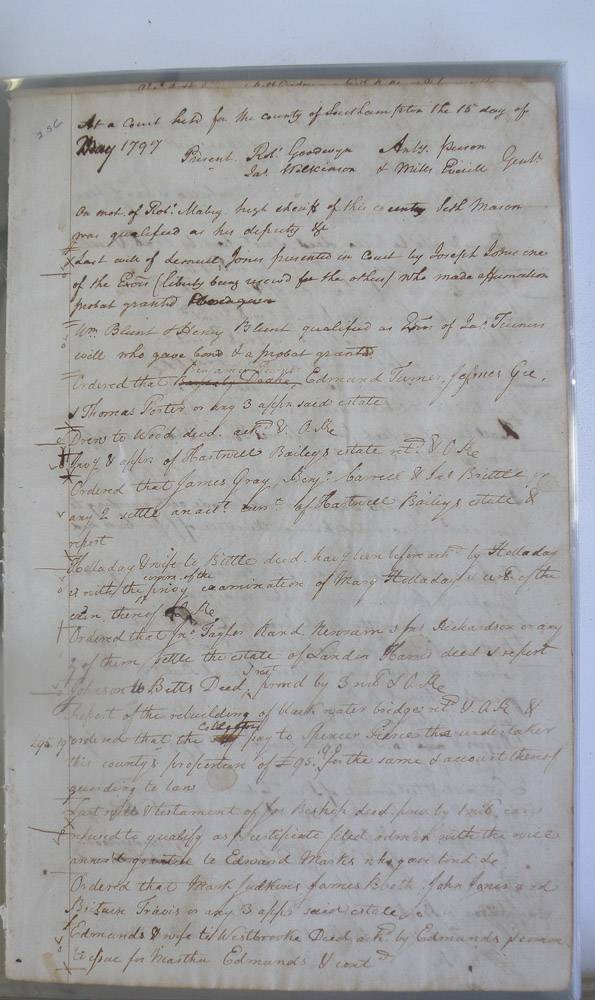 236
At a Court held for the county of Southampton the 15 day of
May 1797 Present Robt. Goodwyn Anty. Person
Jas. Wilkinson & Miles Everitt Gents
On mot. of Robt. Mabry high sheriff of this county Seth Mason
was qualified as his deputy &c
Last will of Jones presented in Court by Joseph Jones one
of the Exors (liberty being reserved for the others) who made affirmation
probat granted
Wm. Blunt & Henry Blunt qualified as Exors of Jas. Turners
will who gave bond & a probat granted
Benjamin Turner
Ordered that Edmund Turner, James Gee,
& Thomas Porter or any 3 appr said estate
Drew to Wood deed ackd. & O.Re
Invy & appr. of Hartwell Baileys estate retd. & O Re
Ordered that James Gray, Benja. Carrell & Jas Brittle or
any 2 settle an acct. of Hartwell Baileys estate &
report
Holladay & wife to Bittle deed havg been before ackd. by Holladay
comn. of the
is with the privy examination of Mary Holladay & cert of the
exn thereof O Re
Ordered that Jno. Taylor Rand. Newsum & Jno Richardson or any
2 of them settle the estate of Landon Harris deed & report
Johnson to Betts Deed & rect. proved by 3 witn & O Re
Report of the rebuilding of black water bridge retd. & O.Re &
Collector
£95.19 ordered that the pay to Spencer Pierce the undertaker
this county's proportion of £95.19 for the same & account thereof
according to law
Last will & testament of Jos Bishop deed prov by 1 wit exors
refused to qualify as certificate filed admon with the will
annexd granted to Edward Marks who gave bond &c
Ordered that Mark Judkins James Booth, John Jones and
Travis or any 3 appr said estate
Edmunds & wife to Westbrooke Deed ackd. by Edmunds &
to issue for Martha Edmunds & contd